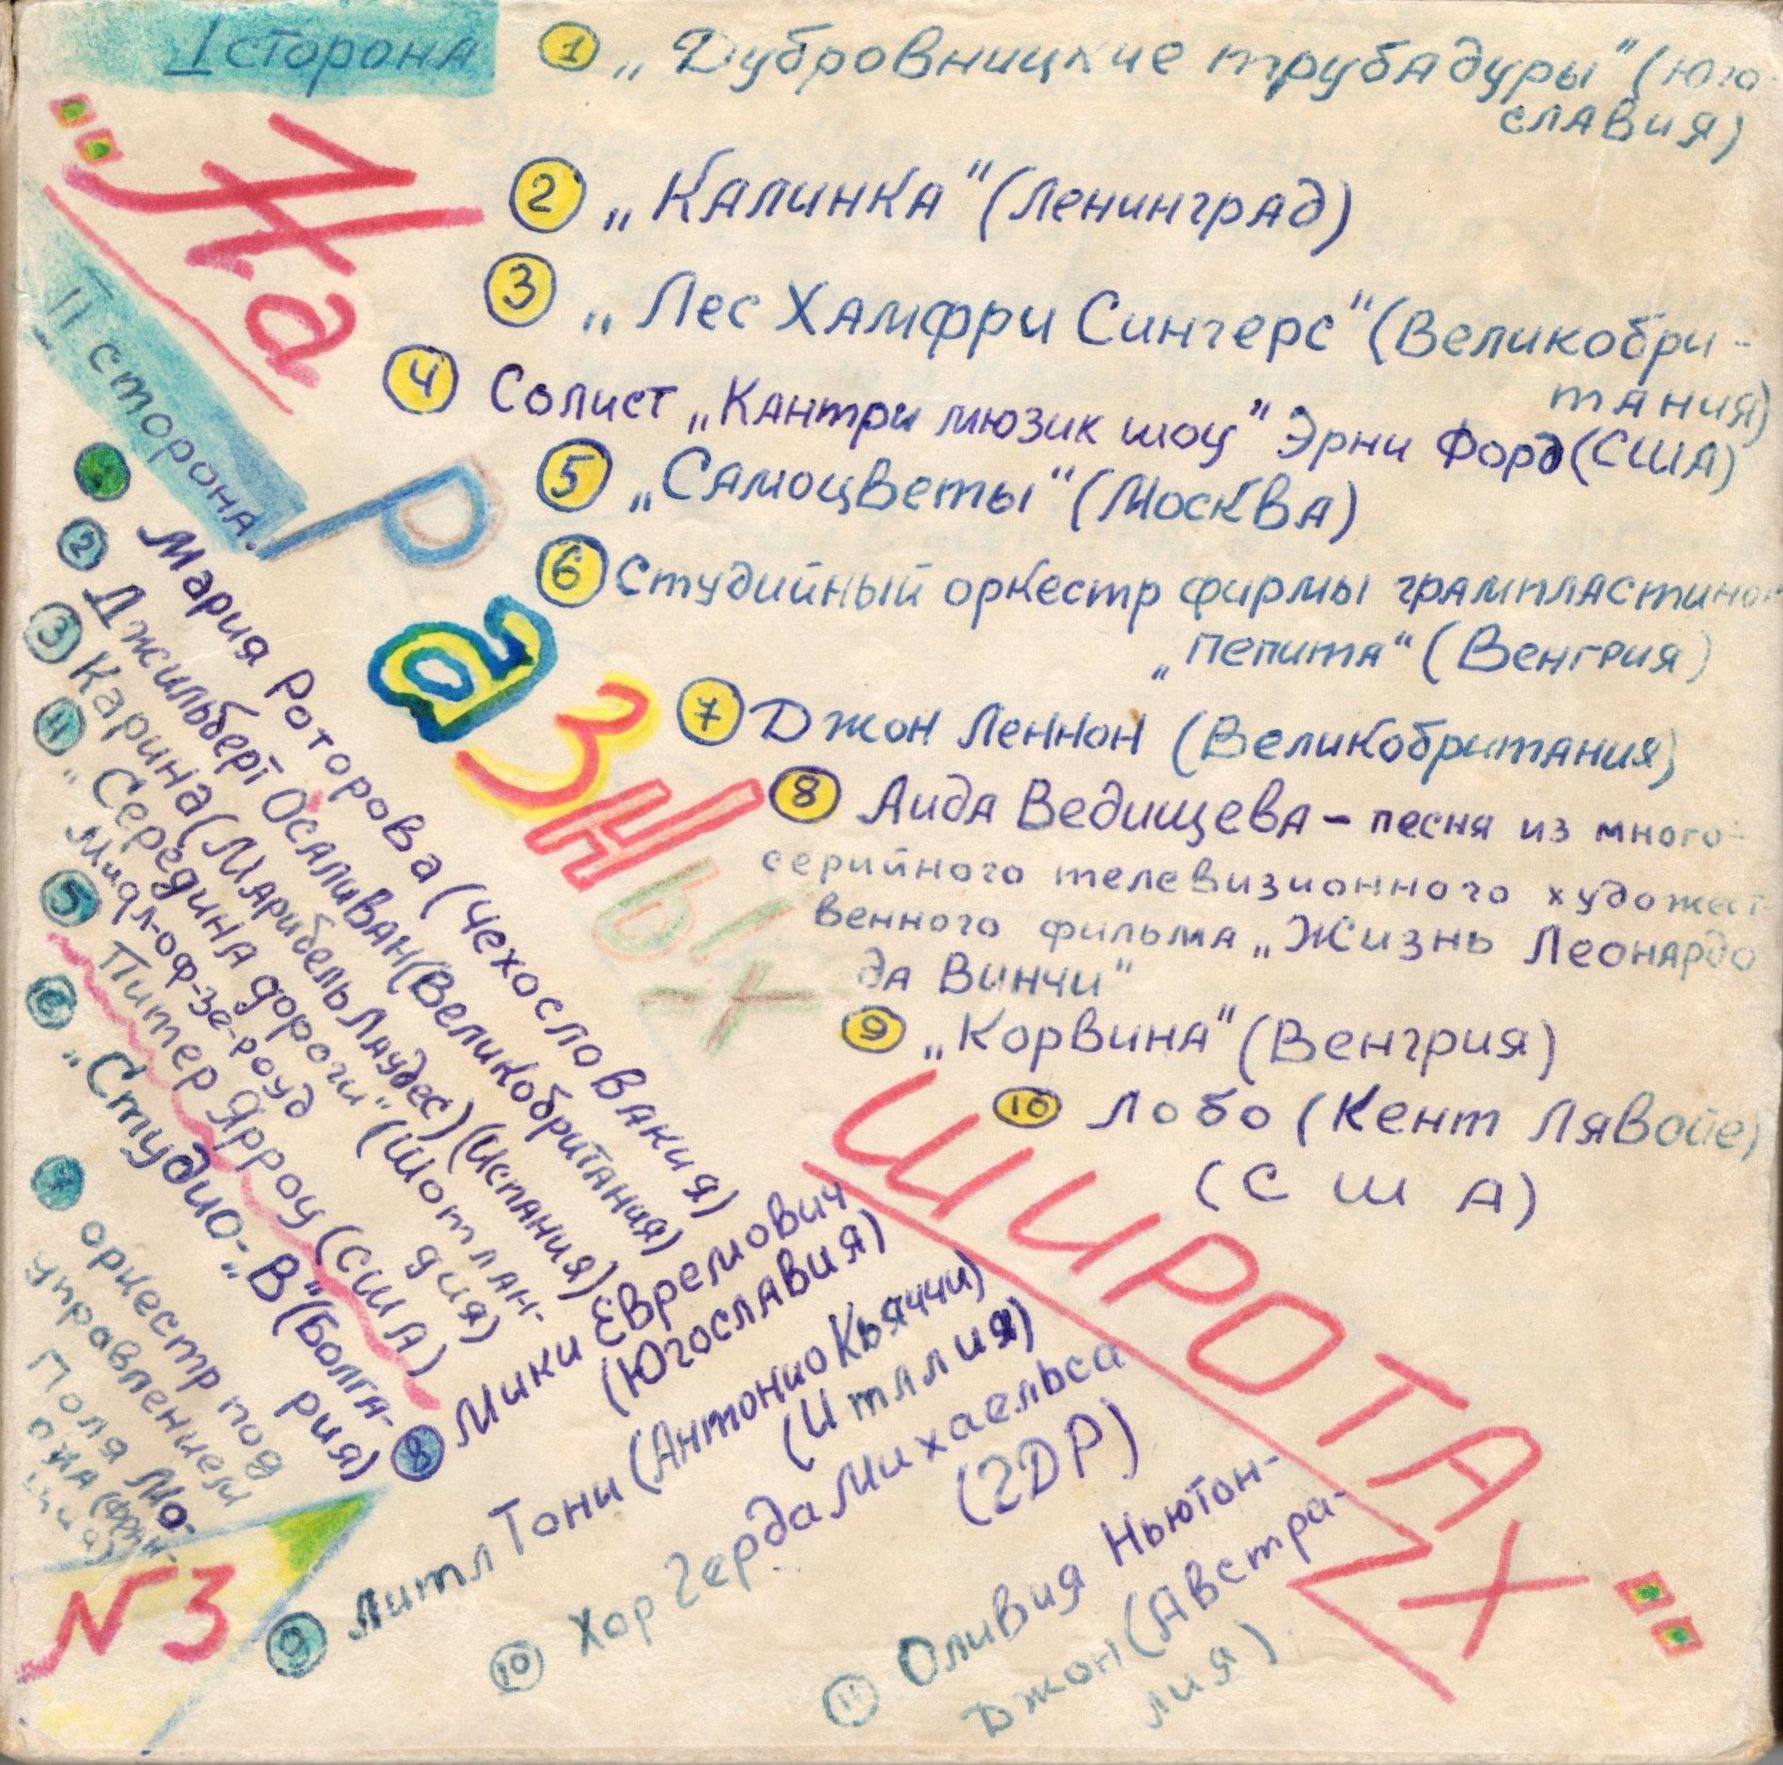 I сторона
„На
разных
широтах"
№3
① „Дубровницкие трубадуры" (Юго
славия)
② „Калинка" (Ленинград)
③ „Лес Хамфри Сингерс" (Великобри-
тания)
④ Солист „Кантри мюзик шоу" Эрни Форд (США)
⑤ „Самоцветы" (Москва)
⑥ Студийный оркестр фирмы грампластинок
„Пепита" (Венгрия)
⑦ Джон Леннон (Великобритания)
⑧ Аида Ведищева – песня из много-
серийного телевизионного художест-
венного фильма „Жизнь Леонардо
да Винчи"
⑨ „Корвина" (Венгрия)
⑩ Лобо (Кент Лявойе)
(США)
II сторона.
Мария Роторова (Чехословакия)
② Джильберт Осаливан (Великобритания)
③ Карина (Марибель Лаудес) (Испания)
④ „Середина дороги" (Шотлан-
дия)
Мидл-оф-зе-роуд
⑤ Питер Ярроу (США)
⑥ „Студио-„В" (Болга-
рия)
⑦ оркестр под
управлением
Поля Мо-
риа (Фран-
ция)
⑧ Мики Евремович
(Югославия)
⑨ Литл Тони (Антонио Кьяччи)
(Италия)
⑩ Хор Герда Михаельса
(ГДР)
⑪ Оливия Ньютон-
Джон (Австра-
лия)